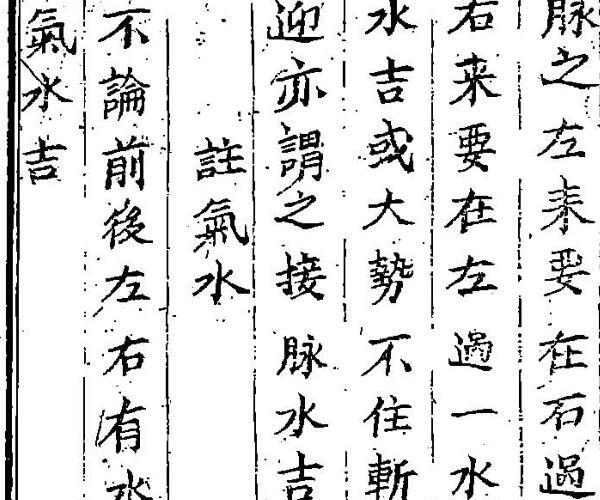 脉之左来要在石過
右来要在左過一水
水吉或大勢不住斬
迎亦謂之接脉水吉
註氣水
不論前後左右有水
氣水吉